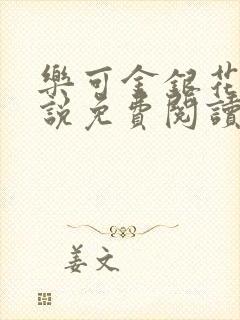 樂可金銀花
說免費閱讀
姜文